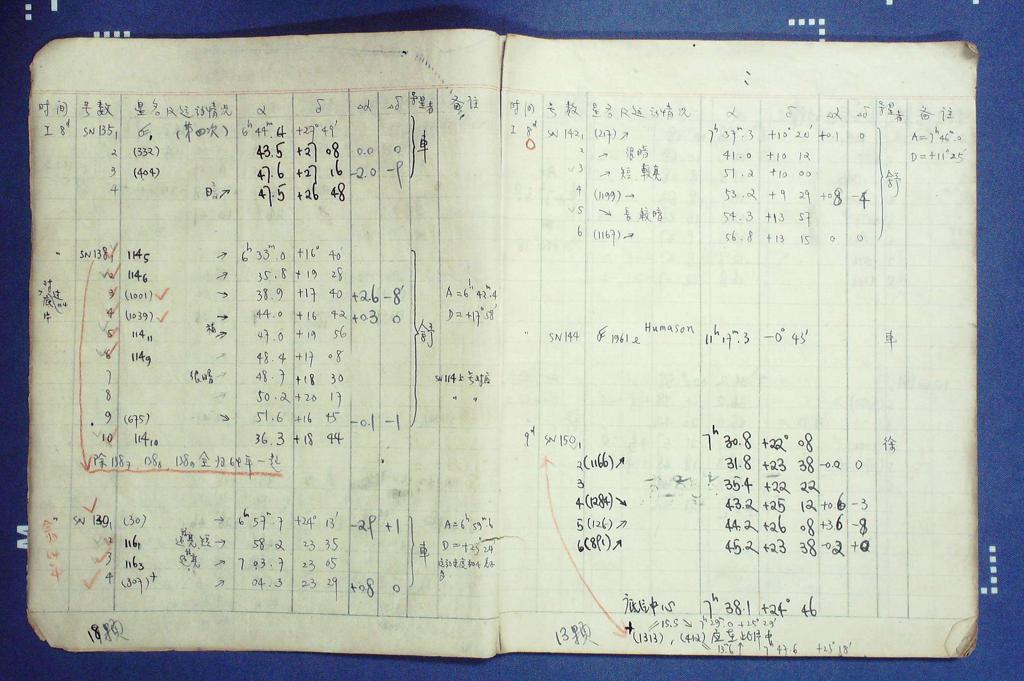 时间 号数 星名及运动情况 α δ Δα Δδ 寻星者 备注
I 8d SN 135₁ (第四次) 6h 44m.4 +27° 49' 車
2 (332) 43.5 +27 08 0.0 0
3 (404) 47.6 +27 16 -2.0 -9
4 → 47.5 +26 48
" SN 138₁ 114₅ → 6h 33m.0 +16° 40' 舒
2 114₆ → 35.8 +19 28
3 (1001) → 38.9 +17 40 +2.6 -8' A=6h 42m.4
4 (1039) → 44.0 +16 42 +0.3 0 D=+17° 58'
5 114₁₁ → 47.0 +19 56
6 114₉ → 48.4 +17 08
7 很暗 → 48.7 +18 30 SN114上号对应
8 50.2 +20 17 " "
9 (675) → 51.6 +16 45 -0.1 -1
10 114₁₀ 36.3 +18 44
除138₇, 138₈, 138₉全
" SN 130₁ (30) → 6h 57m.7 +24° 13' -29 +1 車 A=6h 59m.6
2 116₁ 短 → 58.2 23 35 D=+23° 24'
3 116₃ → 7 03.7 23 05
4 (307)+ → 04.3 23 29 +0.8 0
18颗
时间 号数 星名及运动情况 α δ Δα Δδ 寻星者 备注
I 8d SN 142₁ (217) ↗ 7h 37m.3 +10° 20' +0.1 0 舒 A=7h 46m.0
0 2 → 很暗 41.0 +10 12 D=+11° 25'
3 → 短 較亮 51.2 +10 00
4 (1199) → 53.2 +9 29 +0.8 -4
5 ↘ 長 較暗 54.3 +13 57
6 (1167) → 56.8 +13 15 0 0
" SN 144 1961 e Humason 11h 17m.3 -0° 43' 車
9d SN 150₁ 7h 30.8 +22° 08 徐
2 (1166) ↗ 31.8 +23 38 -0.2 0
3 35.4 +22 22
4 (1284) ↘ 43.2 +25 12 +0.6 -3
5 (126) ↗ 44.2 +26 08 +3.6 -8
6 (891) ↗ 45.2 +23 38 -0.2 +0
底片中心 7h 38.1 +24° 46
15.5 ↘ 7h 29m.0 +25° 29'
13颗 + (1313), (412) 应在此片中
13.6 ↑ 7h 47.6 +23° 18'